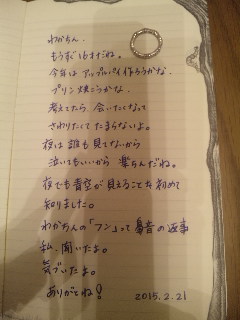 わかちん。
もうすぐ16才だね。
今年は、アップルパイ作ろうかな、
プリン焼こうかな、
考えてたら、会いたくなって
さわりたくてたまらないよ。
夜は誰も見てないから
泣いてもいいから 楽ちんだね。
夜でも青空が見えることを初めて
知りました。
わかちんの「フン」って鼻音の返事
私、聞いたよ。
気づいたよ。
ありがとね!
2015.2.21